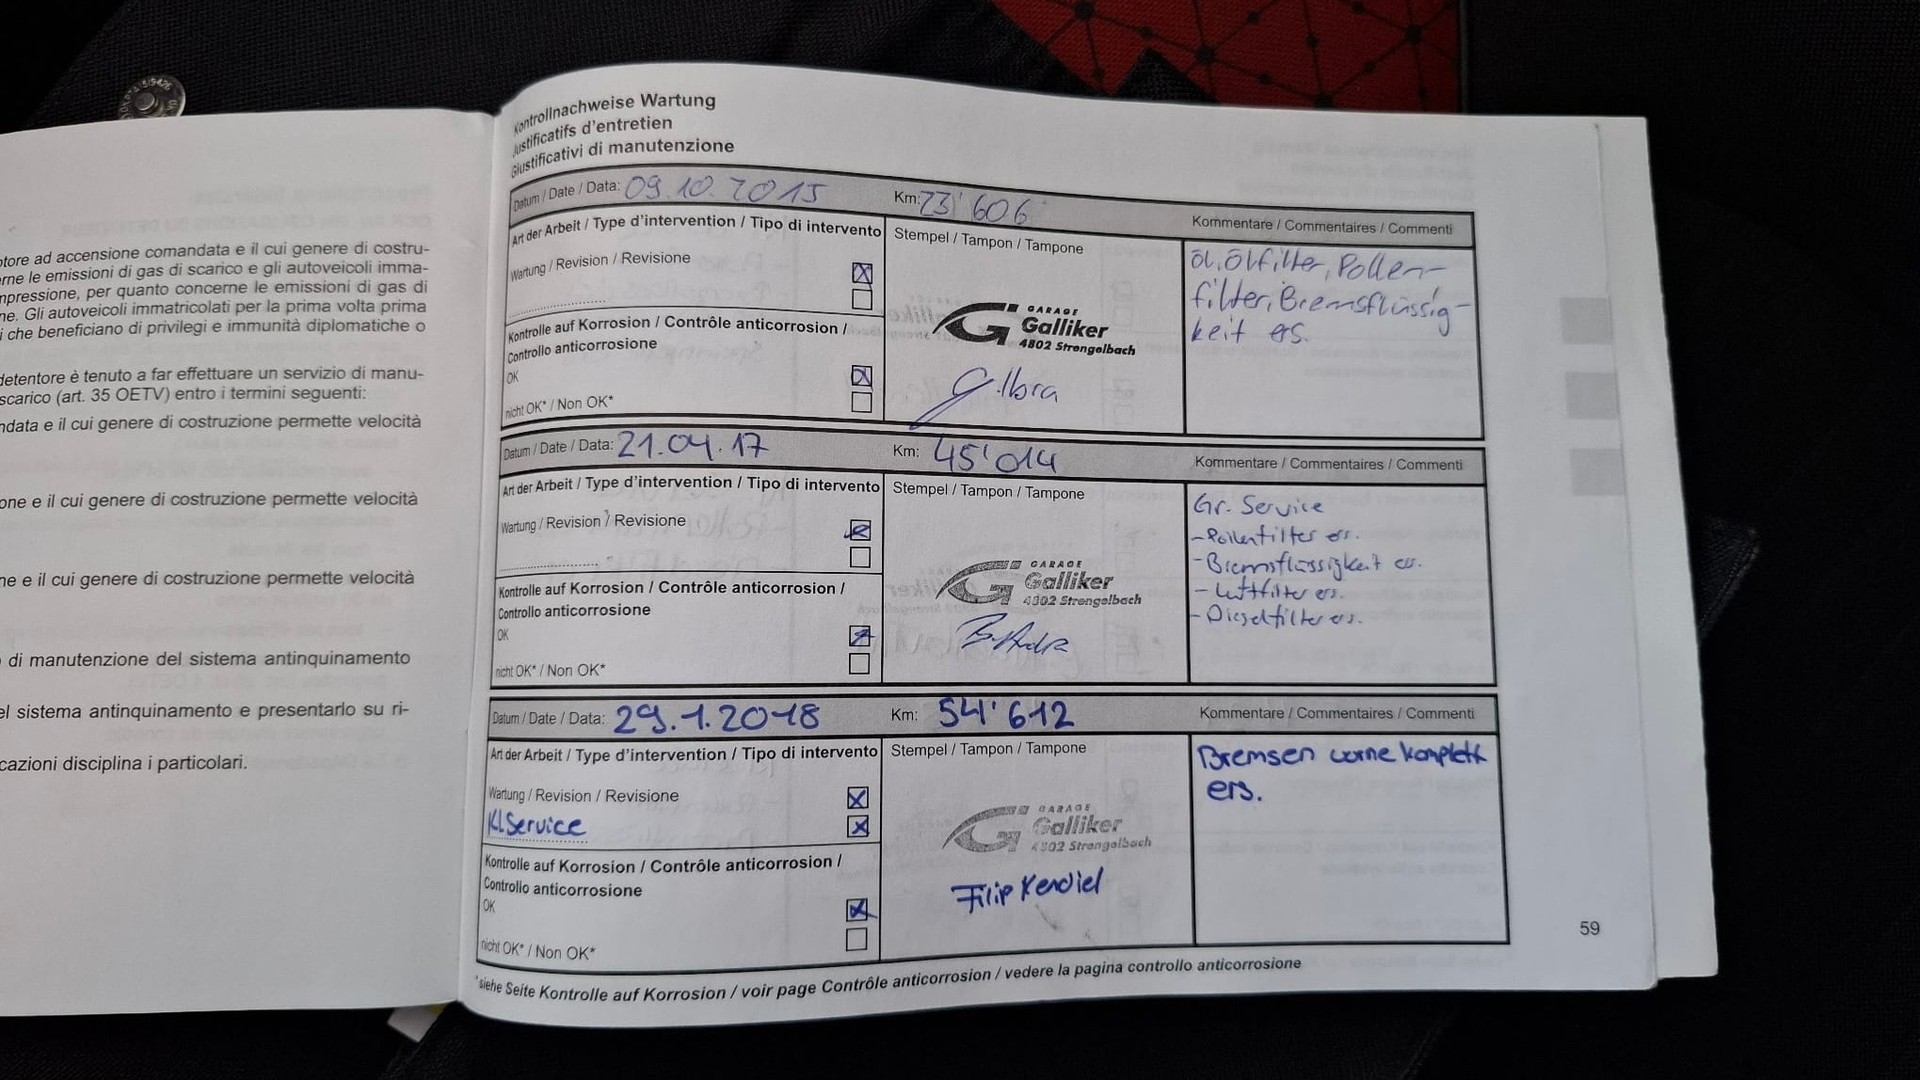 otore ad accensione comandata e il cui genere di costru-
erne le emissioni di gas di scarico e gli autoveicoli imma-
mpressione, per quanto concerne le emissioni di gas di
ne. Gli autoveicoli immatricolati per la prima volta prima
i che beneficiano di privilegi e immunità diplomatiche o
detentore è tenuto a far effettuare un servizio di manu-
scarico (art. 35 OETV) entro i termini seguenti:
ndata e il cui genere di costruzione permette velocità
one e il cui genere di costruzione permette velocità
ne e il cui genere di costruzione permette velocità
di manutenzione del sistema antinquinamento
el sistema antinquinamento e presentarlo su ri-
cazioni disciplina i particolari.
Kontrollnachweise Wartung
Justificatifs d'entretien
Giustificativi di manutenzione
Datum / Date / Data: 09.10.2015
Km: 23'606
Kommentare / Commentaires / Commenti
Art der Arbeit / Type d'intervention / Tipo di intervento
Stempel / Tampon / Tampone
Wartung / Revision / Revisione
Öl, Ölfilter, Pollen-
filter, Bremsflüssig-
keit ers.
Kontrolle auf Korrosion / Contrôle anticorrosion /
Controllo anticorrosione
OK
nicht OK* / Non OK*
GARAGE
Galliker
4802 Strengelbach
Datum / Date / Data: 21.04.17
Km: 45'014
Kommentare / Commentaires / Commenti
Art der Arbeit / Type d'intervention / Tipo di intervento
Stempel / Tampon / Tampone
Wartung / Revision / Revisione
Gr. Service
- Pollenfilter ers.
- Bremsflüssigkeit ers.
- Luftfilter ers.
- Dieselfilter ers.
Kontrolle auf Korrosion / Contrôle anticorrosion /
Controllo anticorrosione
OK
nicht OK* / Non OK*
GARAGE
Galliker
4802 Strengelbach
Datum / Date / Data: 29.1.2018
Km: 54'612
Kommentare / Commentaires / Commenti
Art der Arbeit / Type d'intervention / Tipo di intervento
Stempel / Tampon / Tampone
Wartung / Revision / Revisione
Kl.Service
Bremsen vorne komplett
ers.
Kontrolle auf Korrosion / Contrôle anticorrosion /
Controllo anticorrosione
OK
nicht OK* / Non OK*
GARAGE
Galliker
4802 Strengelbach
Filip
59
*siehe Seite Kontrolle auf Korrosion / voir page Contrôle anticorrosion / vedere la pagina controllo anticorrosione